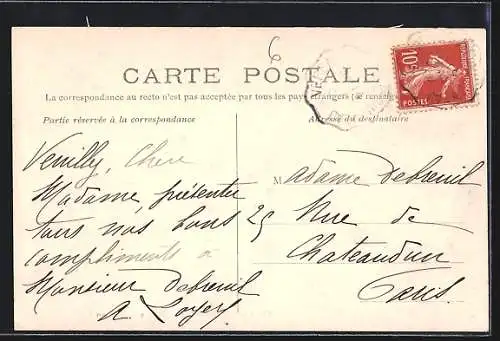 6
CARTE POSTALE
La correspondance au recto n'est pas acceptée par tous les pays étrangers (se renseigner
Partie réservée à la correspondance
Adresse du destinataire
10c
POSTES
Veuilly, Chere
Madame, présenter
tous nos bons
compliments a
Monsieur Debreuil
A Loyer
Madame Debreuil
25 Rue de
Chateaudun
Paris.